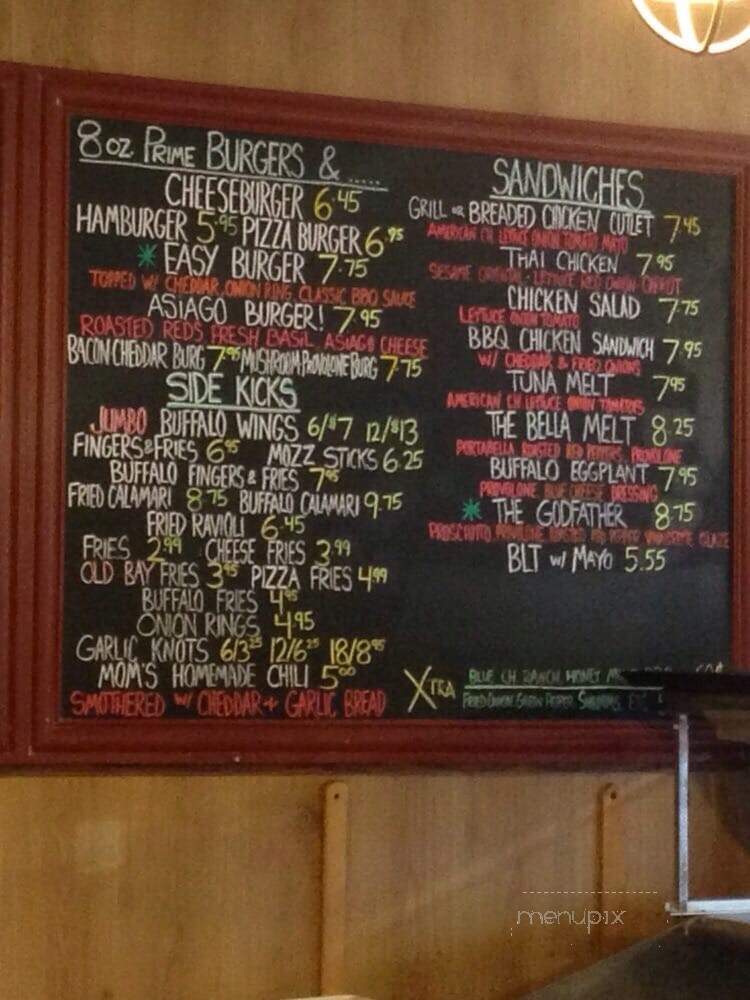 8 oz. PRIME BURGERS & .....
CHEESEBURGER 6.45
HAMBURGER 5.95 PIZZA BURGER 6.95
EASY BURGER 7.75
TOPPED W/ CHEDDAR ONION RING CLASSIC BBQ SAUCE
ASIAGO BURGER! 7.95
ROASTED REDS FRESH BASIL ASIAGO CHEESE
BACON CHEDDAR BURG 7.95 MUSHROOM PROVOLONE BURG 7.75
SIDE KICKS
JUMBO BUFFALO WINGS 6/$7 12/$13
FINGERS & FRIES 6.95 MOZZ STICKS 6.25
BUFFALO FINGERS & FRIES 7.95
FRIED CALAMARI 8.75 BUFFALO CALAMARI 9.75
FRIED RAVIOLI 6.45
FRIES 2.99 CHEESE FRIES 3.99
OLD BAY FRIES 3.95 PIZZA FRIES 4.99
BUFFALO FRIES 4.95
ONION RINGS 4.95
GARLIC KNOTS 6/3.25 12/6.25 18/8.95
MOM'S HOMEMADE CHILI 5.00
SMOTHERED W/ CHEDDAR + GARLIC BREAD
SANDWICHES
GRILL OR BREADED CHICKEN CUTLET 7.45
AMERICAN CH LETTUCE ONION TOMATO MAYO
THAI CHICKEN 7.95
SESAME ORIENTAL - LETTUCE RED ONION CARROT
CHICKEN SALAD 7.75
LETTUCE ONION TOMATO
BBQ CHICKEN SANDWICH 7.95
W/ CHEDDAR & FRIED ONIONS
TUNA MELT 7.95
AMERICAN CH LETTUCE ONION TOMATOES
THE BELLA MELT 8.25
PORTABELLA ROASTED RED PEPPERS PROVOLONE
BUFFALO EGGPLANT 7.95
PROVOLONE BLUE CHEESE DRESSING
THE GODFATHER 8.75
PROSCIUTTO PROVOLONE ROASTED RED PEPPER GLAZE
BLT w/ MAYO 5.55
XTRA
BLUE CH RANCH HONEY
FRIED ONION GREEN PEPPER SHROOMS ETC
menupix